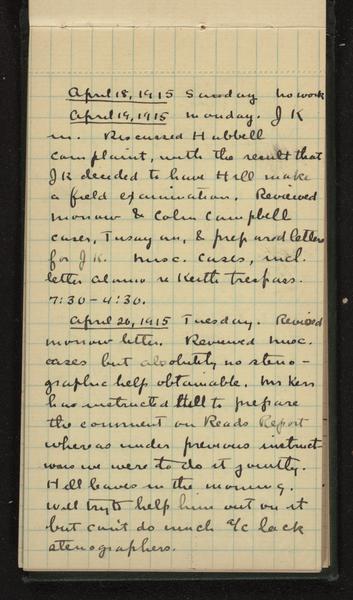 April 18, 1915 Sunday no work
April 19, 1915 Monday. J K
in. Discussed Hubbell
complaint, with the result that
JK decided to have Hill make
a field examination. Reviewed
Morrow & Colin Campbell
cases, Tusayan, & prepared letters
for J K. Misc. cases, incl.
letter Alamo re Keith trespass.
7:30 – 4:30.
April 20, 1915 Tuesday. Revised
Morrow letter. Reviewed misc.
cases but absolutely no steno-
graphic help obtainable. Mr Kerr
has instructed Hill to prepare
the comment on Reads Report
whereas under previous instruct-
ions we were to do it jointly.
Hill leaves in the morning.
Will try to help him out on it
but can't do much a/c lack
stenographers.